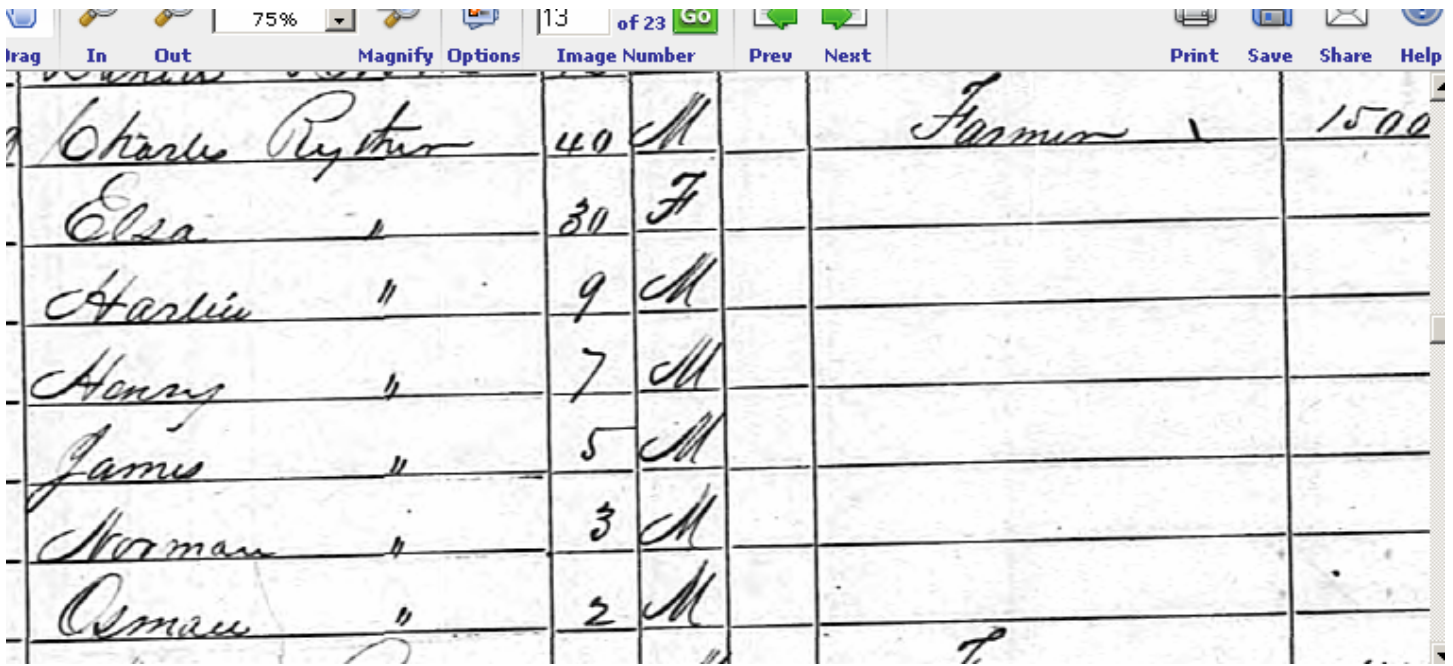 75% 13 of 23 GO
Drag In Out Magnify Options Image Number Prev Next Print Save Share Help
Charles Ryther 40 M Farmer 1500
Elsa " 30 F
Harlie " 9 M
Henry " 7 M
James " 5 M
Norman " 3 M
Osman " 2 M